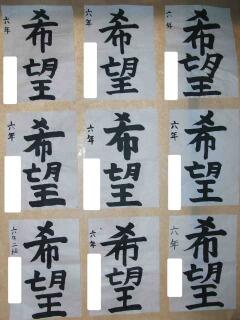 希望
六年
希望
六年
希望
六年
希望
六年
希望
六年
希望
六年
希望
六年二組
希望
六年
希望
六年